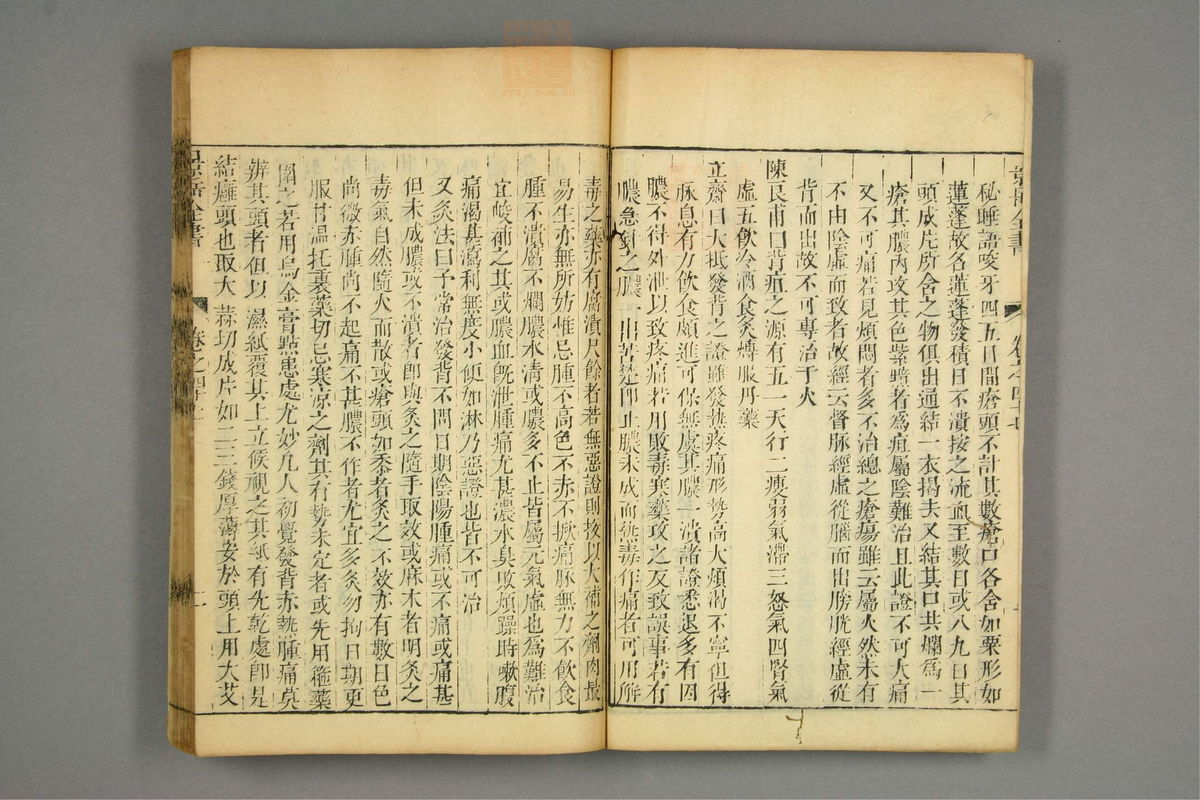 秘睡語咬牙四五日間瘡頭不計其數瘡口各含如粟形如
蓮蓬故名蓮蓬發積日不潰按之流血至數日或八九日其
頭成片所含之物俱出通結一衣揭去又結其口共爛爲一
瘡其膿內攻其色紫黯者爲疽屬陰難治且此證不可大痛
又不可不痛若見煩悶者多不治總之瘡瘍雖云屬火然未有
不由陰虛而致者故經云督脉經虛從腦而出膀胱經虛從
背而出故不可專治于火
陳良甫曰背疽之源有五一天行二瘦弱氣滯三怒氣四腎氣
虛五飲冷酒食炙煿服丹藥
立齋曰大抵發背之證雖發熱疼痛形勢高大煩渴不寧但得
脉息有力飲食頗進可保無虞其膿一潰諸證悉退多有因
膿不得外泄以致疼痛若用敗毒寒藥攻之反致誤事若有
膿急針之膿一出苦楚卽止膿未成而熱毒作痛者可用解
毒之藥亦有腐潰尺餘者若無惡證則投以大補之劑肉最
易生亦無所妨惟忌腫不高色不赤不掀痛脉無力不飲食
腫不潰膿不爛膿水清或膿多不止皆屬元氣虛也爲難治
宜峻補之其或膿血旣泄腫痛尤甚濃水臭敗煩躁時嗽腹
痛渴甚瀉利無度小便如淋乃惡證也皆不可治
又灸法曰予常治發背不問日期陰陽腫痛或不痛或痛甚
但未成膿或不潰者卽與灸之隨手取效或麻木者明灸之
毒氣自然隨火而散或瘡頭如黍者灸之不效亦有數日色
尚微赤腫尚不起痛不甚膿不作者尤宜多灸勿拘日期更
服甘溫托裏藥切忌寒凉之劑其有勢未定者或先用箍藥
圍之若用烏金膏點患處尤妙凡人初覺發背赤熱腫痛莫
辨其頭者但以濕紙覆其上立候視之其紙有先乾處卽是
結癰頭也取大蒜切成片如三錢厚薄安於頭上用大艾
景岳全書
卷之四十七
二